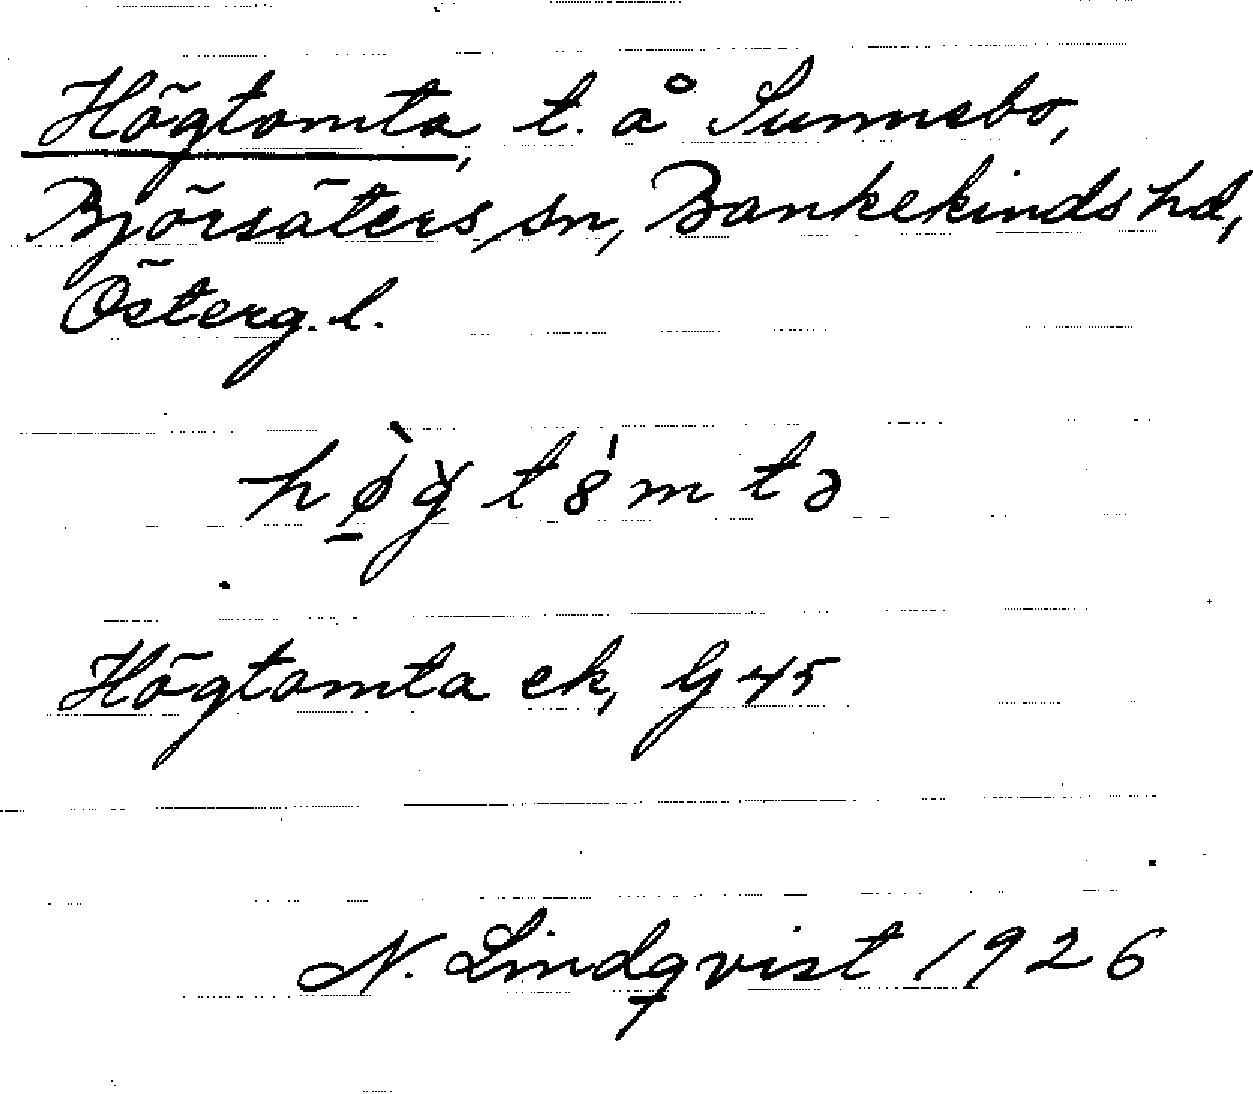 Högtomta, t. å Sunnebo,
Björsäters sn, Bankekinds hd,
Österg. l.
Högtomta ek, G 45
N. Lindqvist 1926